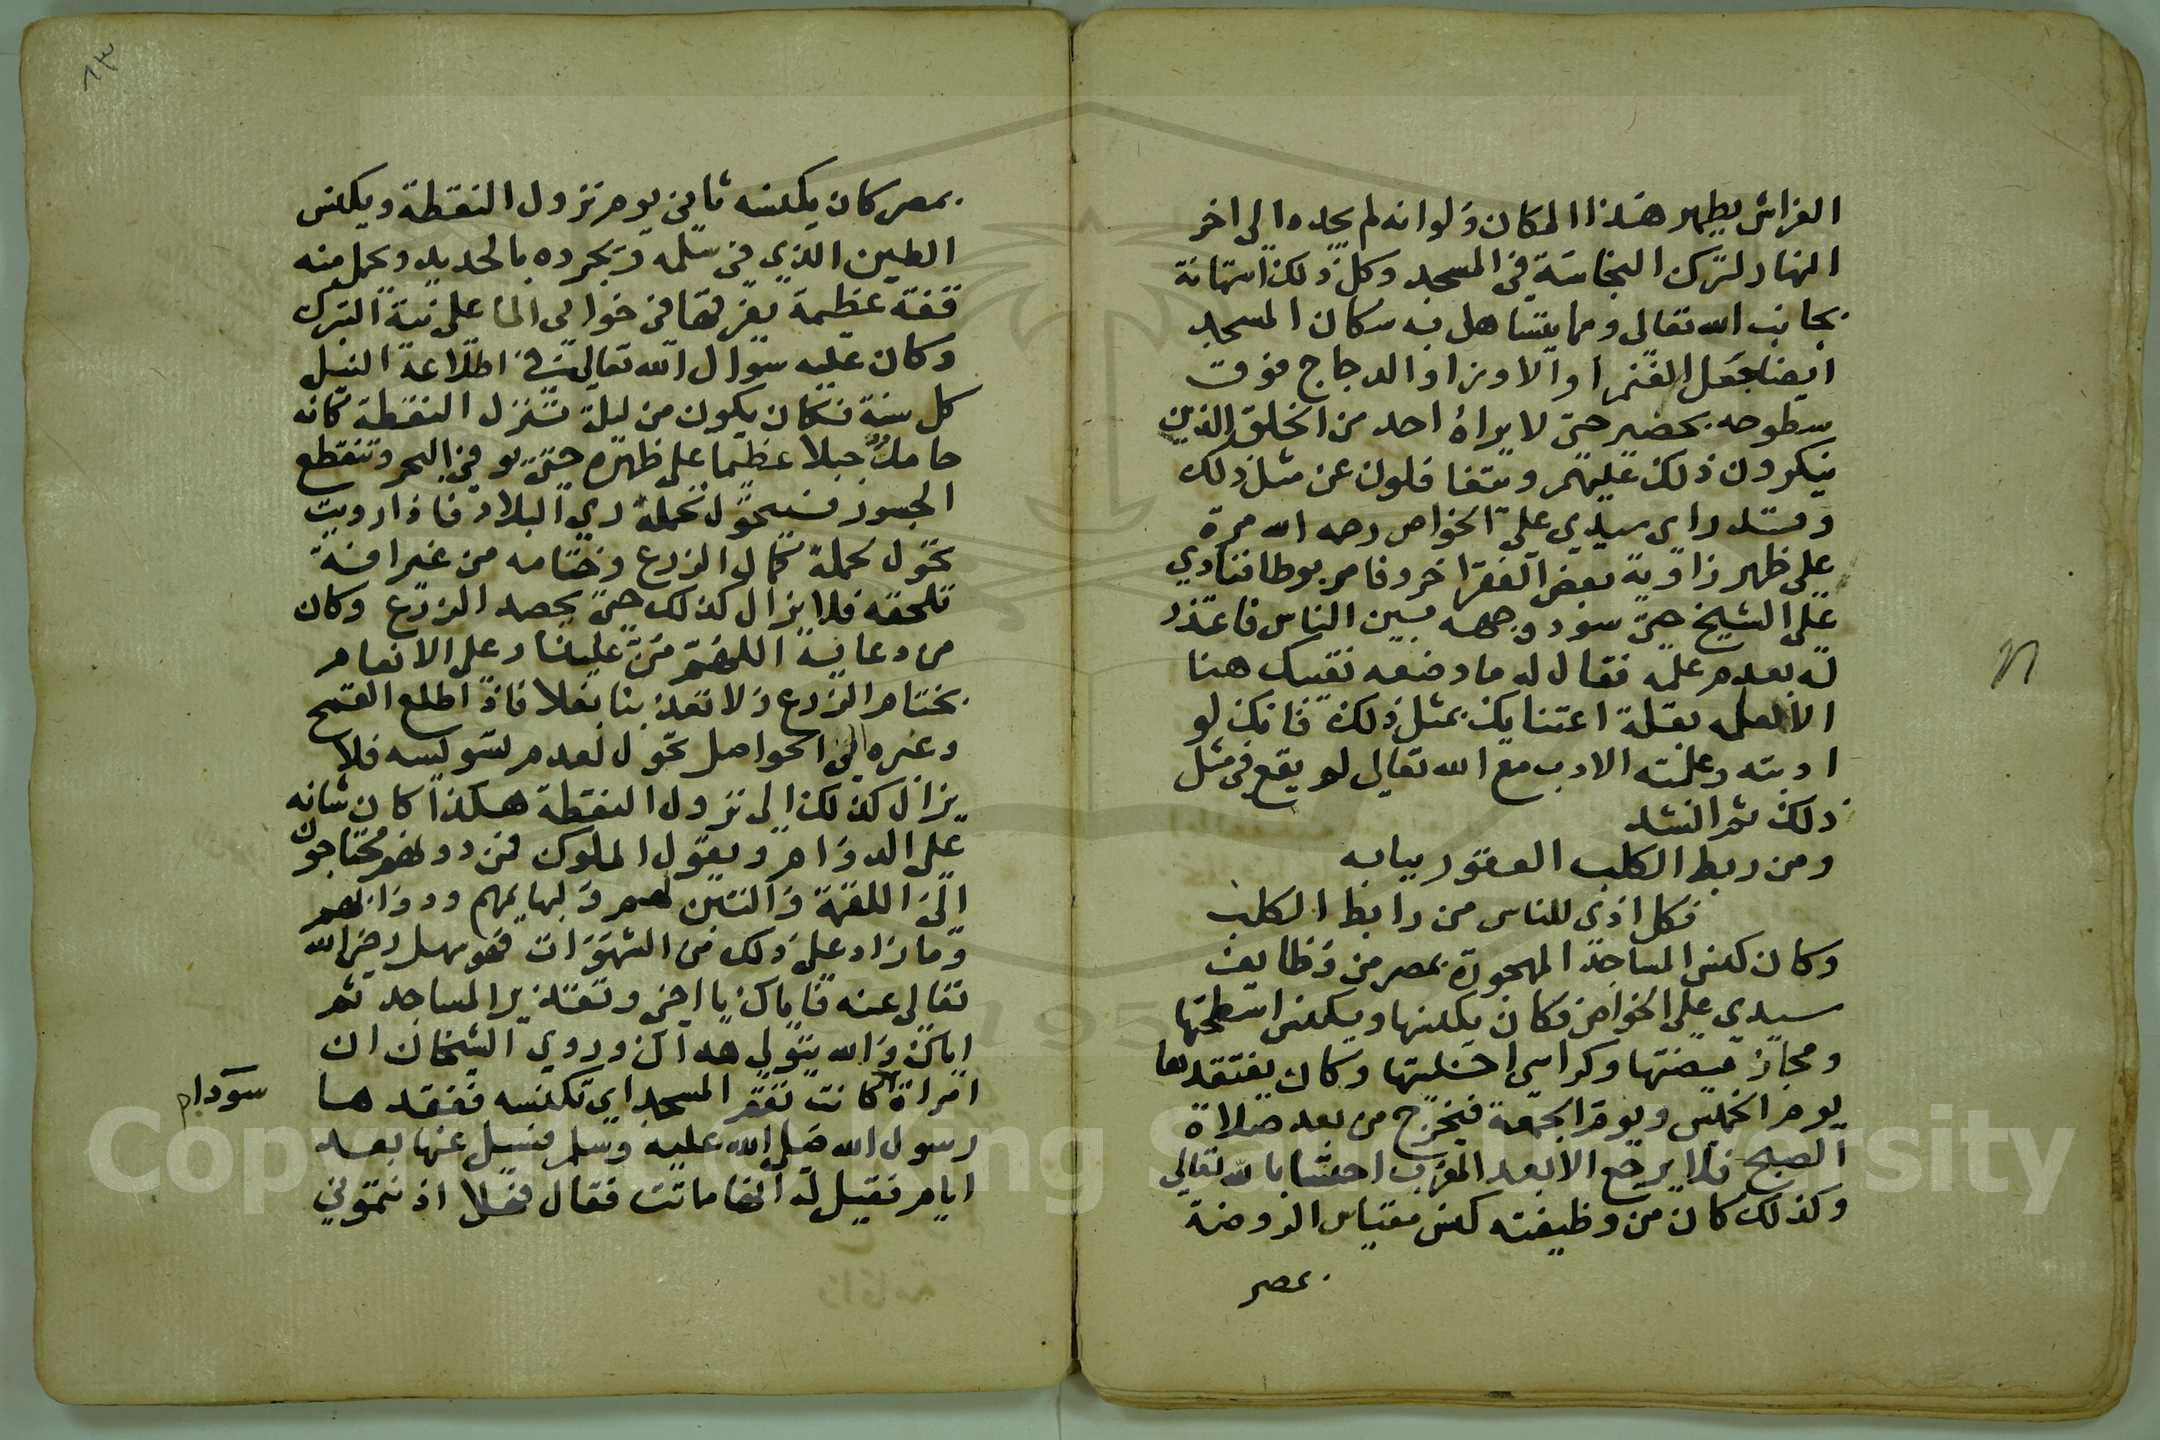 الفراش يطهر هذا المكان ولو انه لم يجده الى اخر
النهار لترك النجاسة في المسجد وكل ذلك استهانة
بجانب الله تعالى ومما يتساهل به سكان المسجد
ايضا جعل الغنم او الاوز او الدجاج فوق
سطوحه بحضير حتى لا يراه احد من الخلق الذين
ينكرون ذلك عليهم ويتغافلون عن مثل ذلك
وقد راى سيدي علي الخواص رحمه الله مرة
على ظهر زاوية بعض الفقرا خروفا مربوطا فنادي
على الشيخ حتى سود وجهه بين الناس فاعتذر
له بعدم علمه فقال له ما وضعه نقيبك هنا
الا لعلمه بقلة اعتنايك بمثل ذلك فانك لو
ادبته وعلمته الادب مع الله تعالى لم يقع في مثل
ذلك ثم انشد
ومن ربط الكلب العقور ببابه
فكل اذى للناس من رابط الكلب
وكان كنس المساجد المهجورة بمصر من وظايف
سيدي علي الخواص فكان يكنسها ويكنس اسطحتها
ومجاز ميضتها وكراسي اخليتها وكان يفتقدها
يوم الخميس ويوم الجمعة فيخرج من بعد صلاة
الصبح فلا يرجع الا بعد المغرب احتسابا لله تعالى
وكذلك كان من وظيفته كنس مقياس الروضة
بمصر
٨٣
بمصر كان يكنسه ثاني يوم نزول النقطة ويكنس
الطين الذي في سلمه ويجرده بالحديد ويحمل منه
قفة عظيمة يفرقها في خوابي الما على نية التبرك
وكان عليه سوال الله تعالى في اطلاعة النيل
كل سنة فكان يكون من ليلة تنزل النقطة كانه
حامل جبلا عظيما على ظهره حتى يوفي البحر وتنقطع
الجسور فيتحول لحملة ري البلاد فاذا رويت
تحول لحملة كمال الزرع وختامه من غير افة
تلحقه فلا يزال كذلك حتى يحصد الزرع وكان
من دعايه اللهم من علينا وعلى الانعام
بختام الزرع ولا تعذبنا بغلا فاذا طلع القمح
وغيره الى الحواصل تحول لعدم تسويسه فلا
يزال كذلك الى نزول النقطة هكذا كان شانه
على الدوام ويقول الملوك فمن دونهم محتاجون
الى اللقمة والتبن لهم ولبهايمهم ودوابهم
وما زاد على ذلك من الشهوات فهو سهل رضي الله
تعالى عنه فاياك يا اخي وتقذير المساجد ثم
اياك والله يتولى هداك وروي الشيخان ان
امراة كانت تقم المسجد اي تكنسه ففقدها
سودا
رسول الله صلى الله عليه وسلم فسيل عنها بعد
ايام فقيل له انها ماتت فقال فهلا اذنتموني
Copyright © King Saud University
195